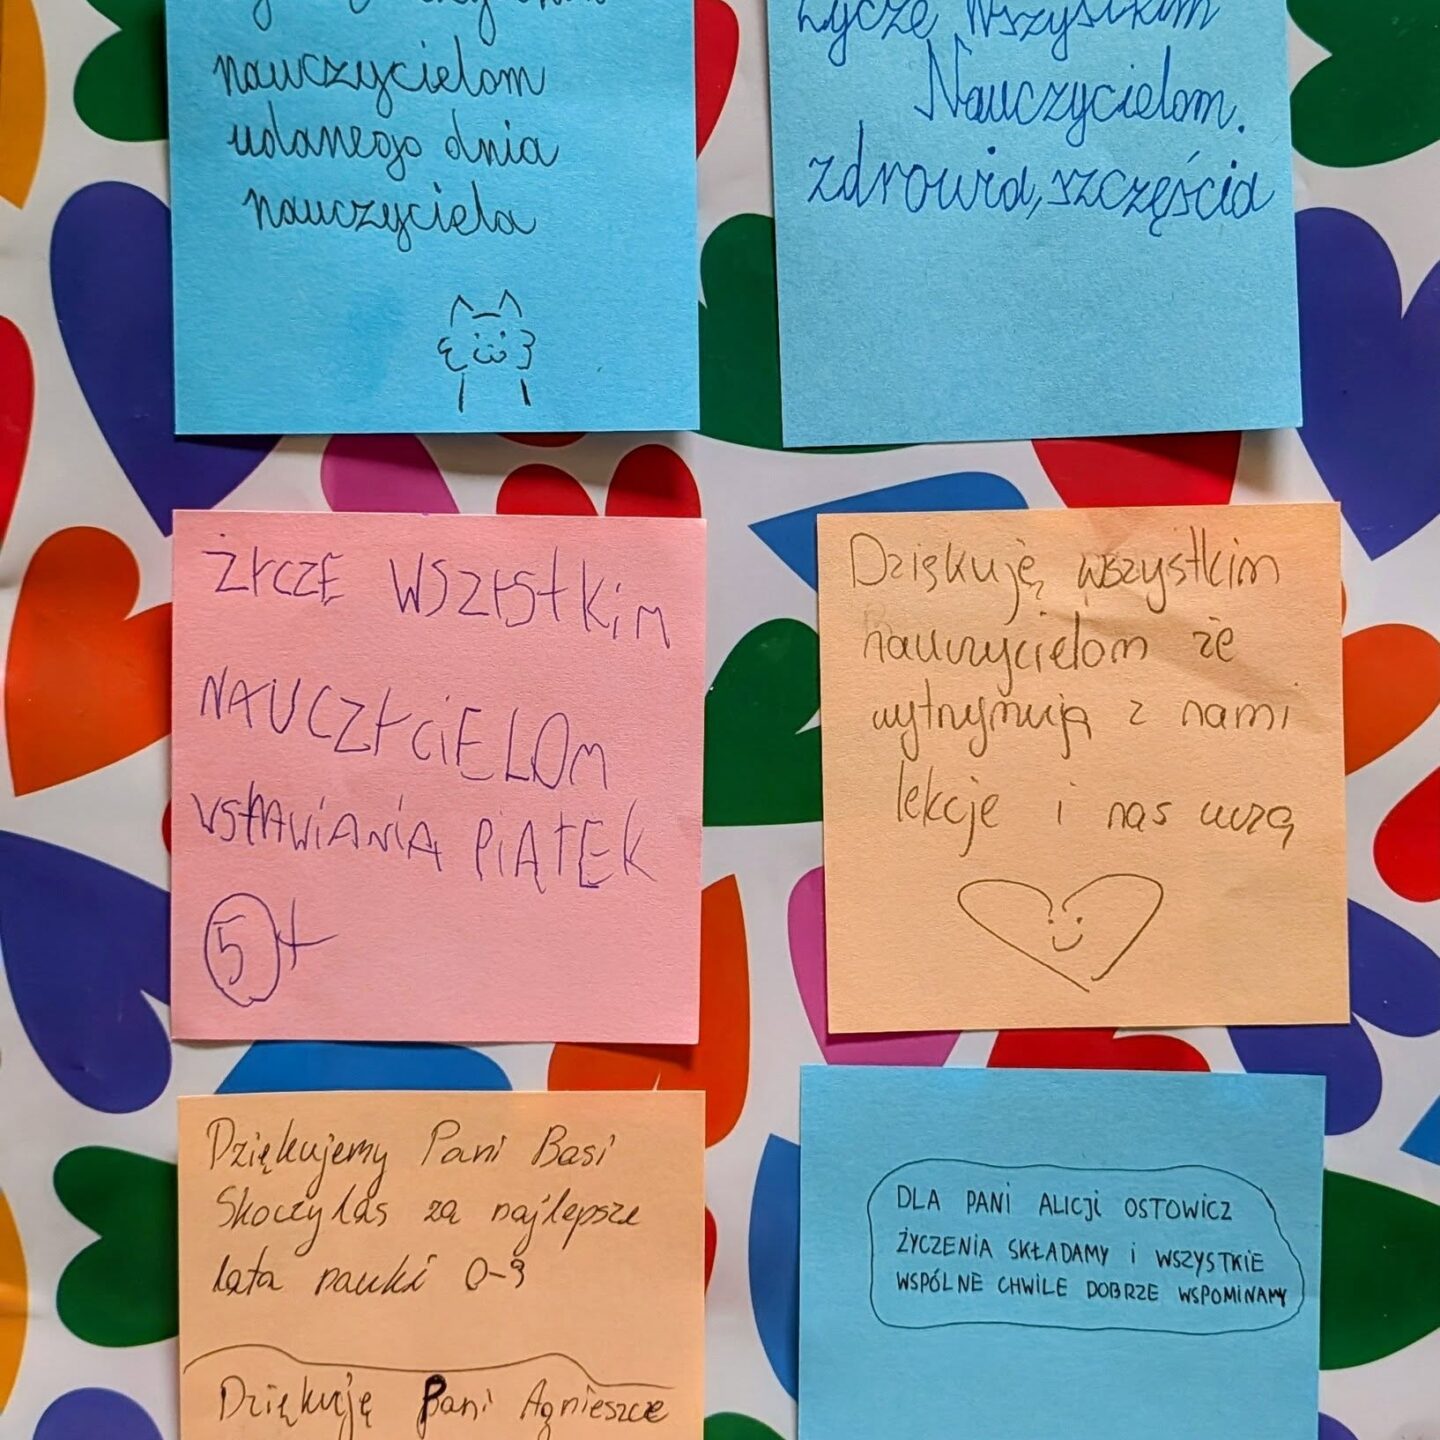 nauczycielom
udanego dnia
nauczyciela
Życzę wszystkim
Nauczycielom.
zdrowia, szczęścia
ŻYCZĘ WSZYSTKIM
NAUCZYCIELOM
WSTAWIANIA PIĄTEK
5+
Dziękuję wszystkim
nauczycielom że
wytrzymują z nami
lekcje i nas uczą
Dziękujemy Pani Basi
Skoczylas za najlepsze
lata nauki 0-3
Dziękuję Pani Agnieszce
DLA PANI ALICJI OSTOWICZ
ŻYCZENIA SKŁADAMY I WSZYSTKIE
WSPÓLNE CHWILE DOBRZE WSPOMINAMY